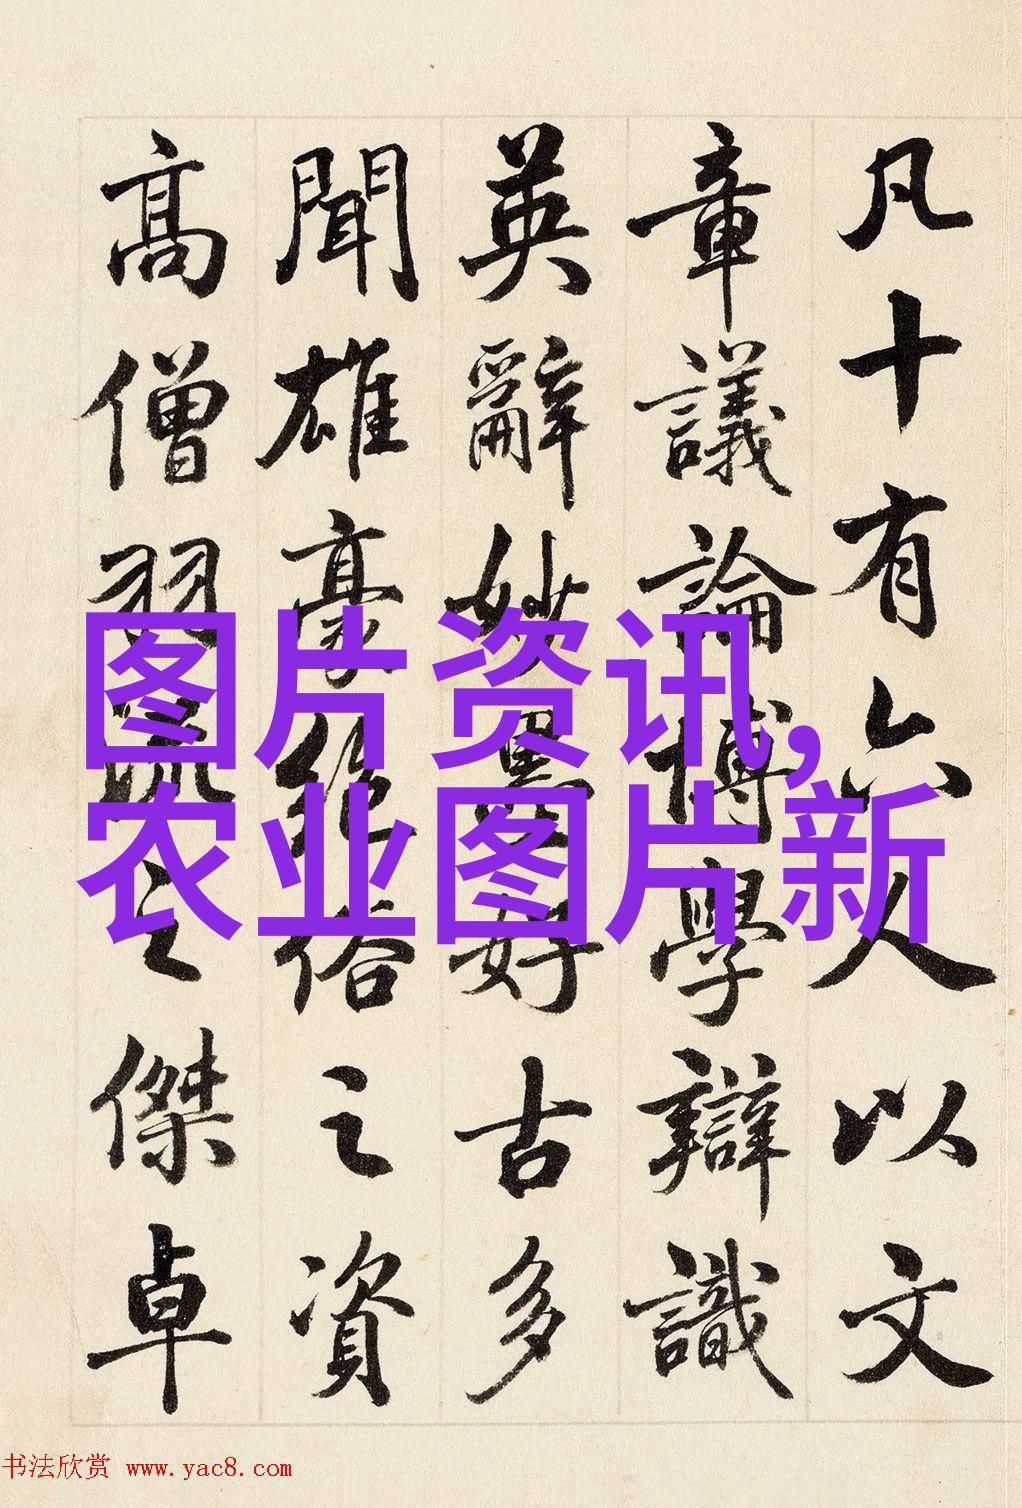 凡十有六人以文
章議論博學辯識
英辭妙墨好古多
聞雄豪絕俗之資
高僧羽流之傑卓
图片资讯,
农业图片新
书法欣赏 www.yac8.com